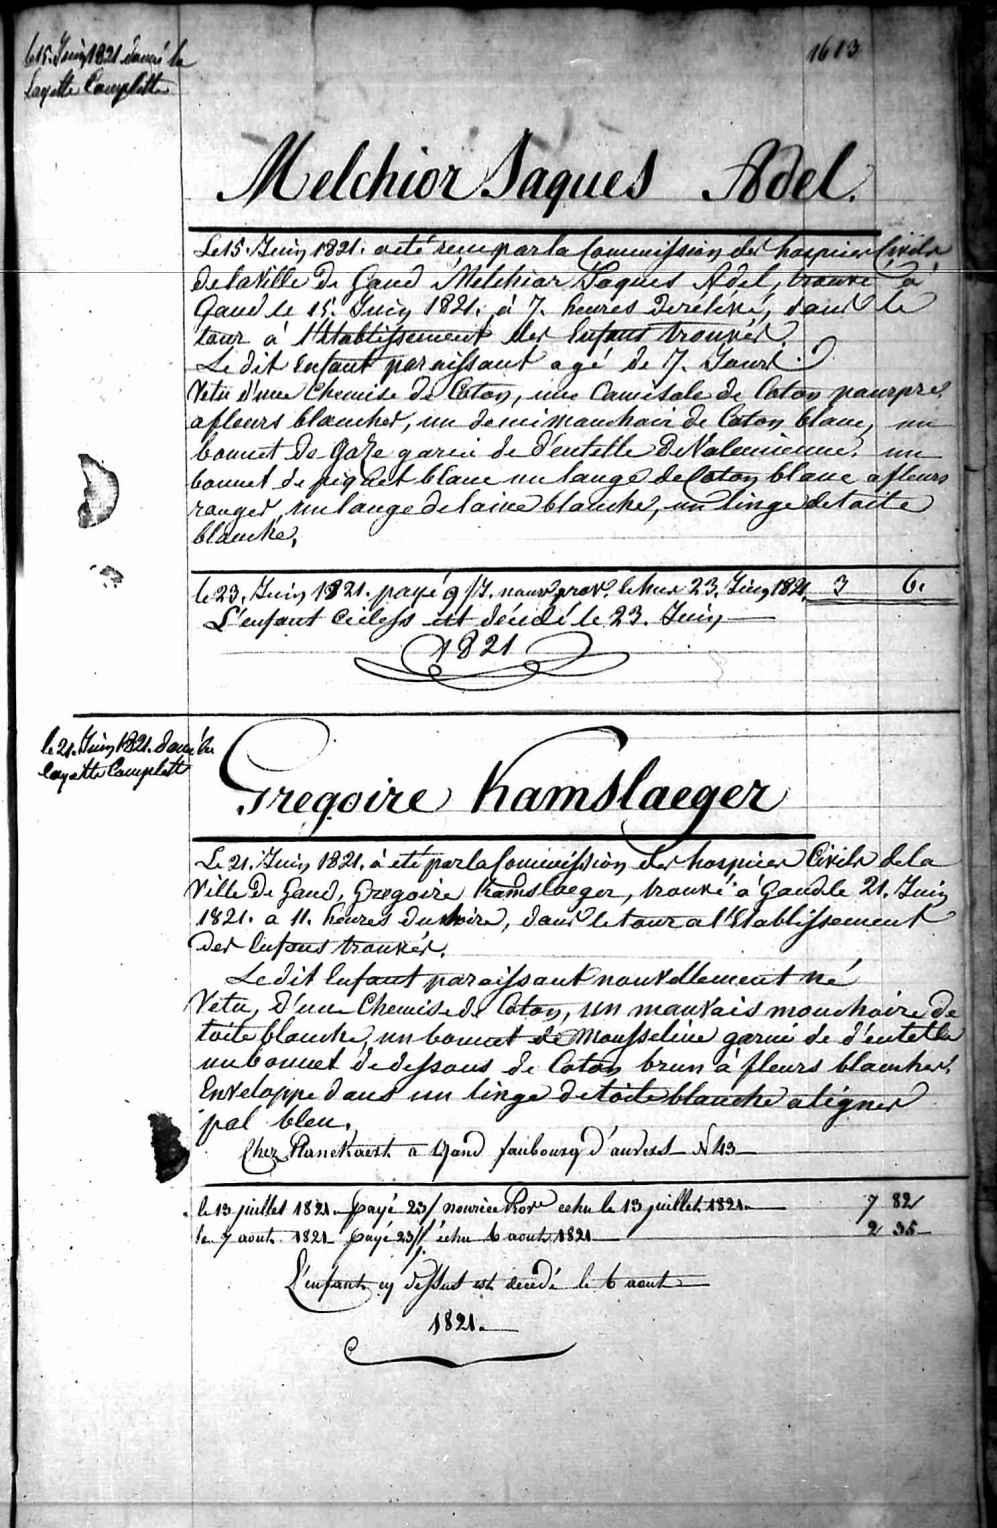 le 15. Juin 1821 donné la
Layette Complette
1613
Melchior Jaques Adel.
Le 15. Juin 1821. a eté reçu par la Commission des hospices Civils
de la Ville de Gand Melchior Jaques Adel, trouvé à
Gand le 15. Juin 1821. à 7. heures de relevé, dans le
tour à l'Etablissement des Enfans trouvés.
Le dit Enfant paraissant agé de 7. Jours.
Vetu d'une Chemise de Coton, une Camisole de Coton pourpre
a fleurs blanches, un demi mouchoir de Coton blanc, un
bonnet de Gaze garni de d'entelle de Valencienne. un
bonnet de piquet blanc un lange de Coton blanc a fleurs
rouges, un lange de laine blanche, un linge de toile
blanche,
le 23. Juin 1821. payé 9/J. nour. prov. 23 Juin 1821. 3 6.
L'enfant ci dess est décédé le 23. Juin
1821
le 21. Juin 1821. donné la
layette Complette
Gregoire Kamslaeger
Le 21. Juin 1821. à eté par la Commission des hospices Civils de la
Ville de Gand, Gregoire Kamslaeger, trouvé à Gand le 21. Juin
1821. a 11. heures du soire, dans le tour a l'Etablissement
des Enfans trouvés.
Le dit Enfant paraissant nouvellement né
Vetu, D'une Chemise de Coton, un mauvais mouchoire de
toile blanche, un bonnet de Mousseline garni de d'entelle
un bonnet de dessous de Coton brun à fleurs blanches,
Enveloppe dans un linge de toile blanche a lignes
pal bleu,
Chez Planckaert a Gand faubourg d'anvers N 43
le 13 juillet 1821. payé 23/ nourice Prov echu le 13 juillet 1821. 7 82
le 7 aout 1821 payé 23/J. échu 6 aout 1821 2 35
L'enfant cy dessus est decedé le 6 aout
1821.